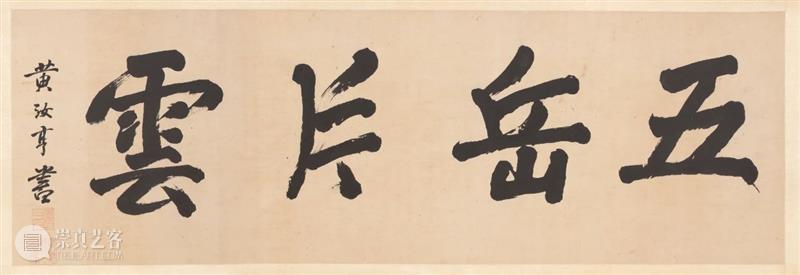 五岳片雲
黄汝亨書
崇真艺客